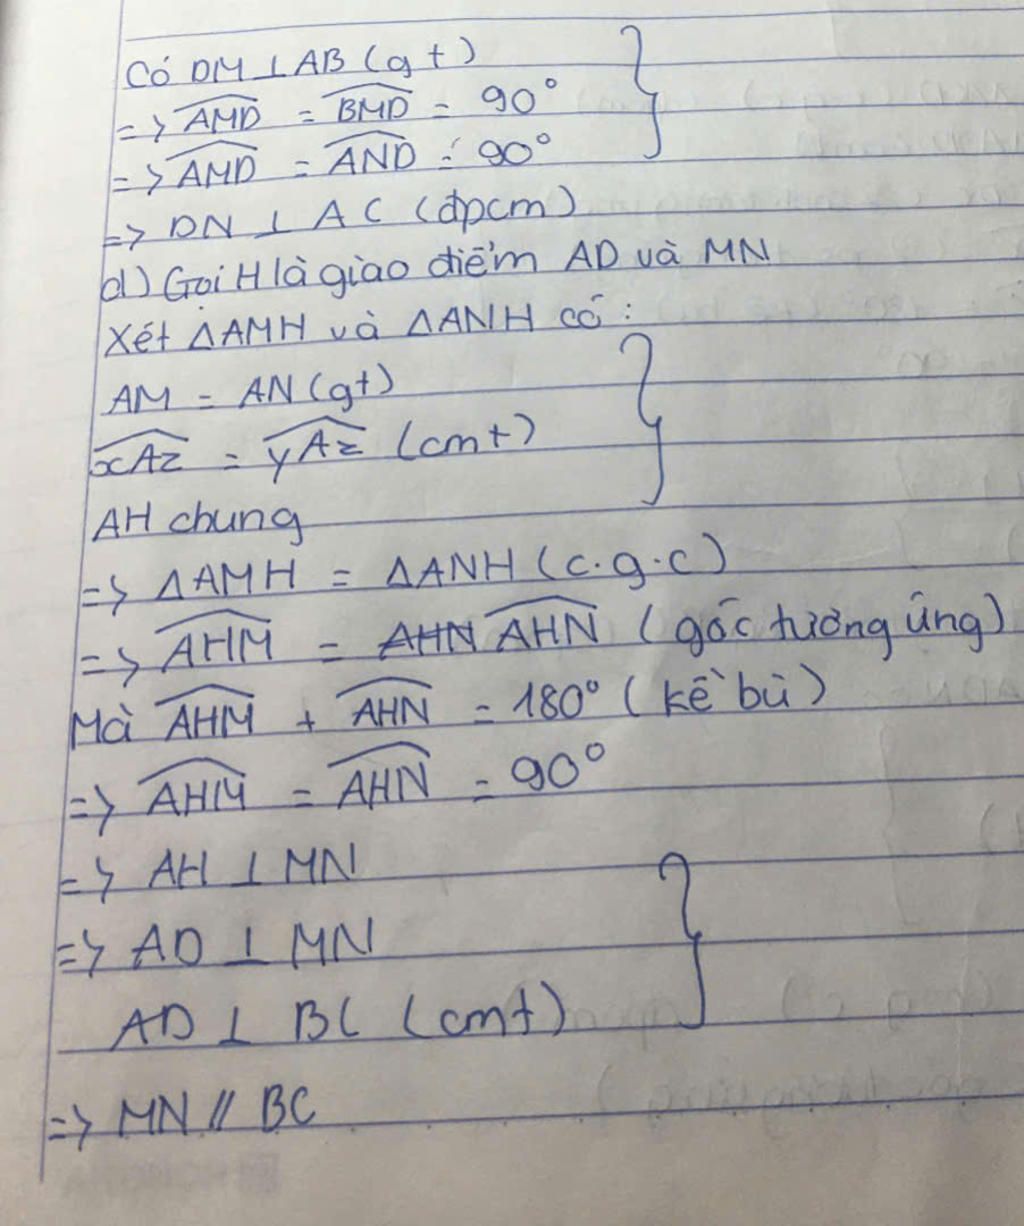 Có DM ⊥ AB (gt)
=> \widehat{AMD} = \widehat{BMD} = 90°
=> \widehat{AMD} = \widehat{AND} = 90°
=> DN ⊥ AC (đpcm)
d) Gọi H là giao điểm AD và MN
Xét ΔAMH và ΔANH có :
AM = AN (gt)
\widehat{xAz} = \widehat{yAz} (cmt)
AH chung
=> ΔAMH = ΔANH (c.g.c)
=> \widehat{AHM} = AHN \widehat{AHN} (góc tương ứng)
Mà \widehat{AHM} + \widehat{AHN} = 180° (kề bù)
=> \widehat{AHM} = \widehat{AHN} = 90°
=> AH ⊥ MN
=> AD ⊥ MN
AD ⊥ BC (cmt)
=> MN // BC